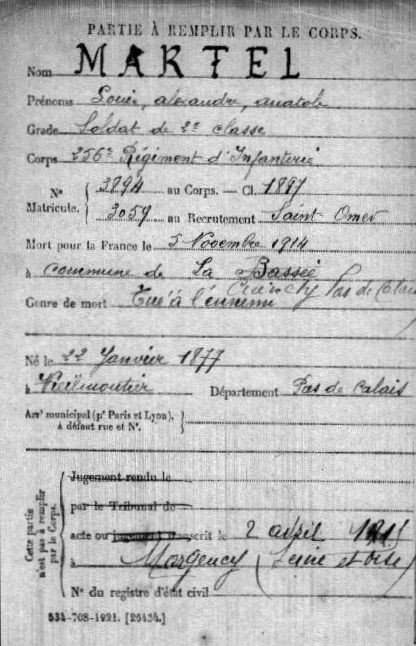 PARTIE À REMPLIR PAR LE CORPS.
Nom MARTEL
Prénoms Louis, alexandre, anatole
Grade Soldat de 2e classe
Corps 256e Régiment d'Infanterie
N° Matricule. { 3894 au Corps. — Cl. 1897
3059 au Recrutement Saint-Omer
Mort pour la France le 5 Novembre 1914
à commune de La Bassée
Cuinchy Pas de Calais
Genre de mort Tué à l'ennemi
Né le 22 Janvier 1877
à Vieilmoutier Département Pas de Calais
Arrt municipal (pr Paris et Lyon), à défaut rue et N°. }
Cette partie n'est pas à remplir par le Corps.
Jugement rendu le
par le Tribunal de
acte ou jugement transcrit le 2 avril 1915
à Margency (Seine et Oise)
N° du registre d'état civil
534-708-1921. [26434.]